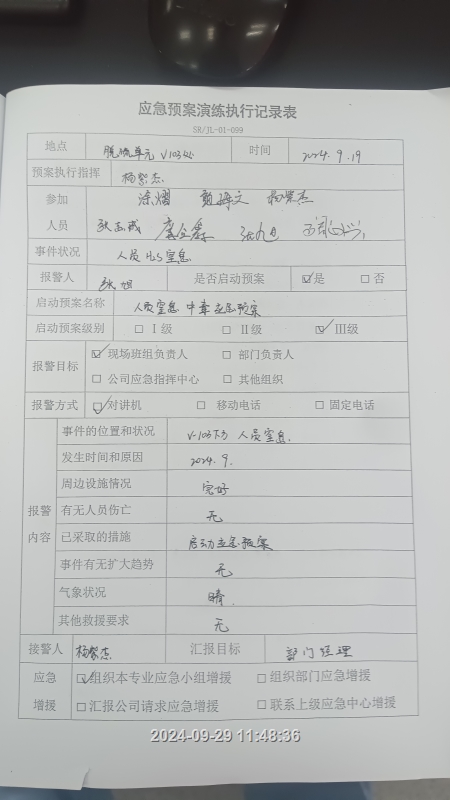 应急预案演练执行记录表
SR/JL-01-099
地点 脱硫单元 V103处 时间 2024.9.19
预案执行指挥 杨紫杰.
参加 涂熠 杨紫杰
人员 张志成
事件状况 人员 H2S 窒息.
报警人 张旭 是否启动预案 ☑是 □否
启动预案名称 人员窒息 中毒应急预案
启动预案级别 □ I级 □ II级 ☑ III级
报警目标 ☑现场班组负责人 □ 部门负责人
□ 公司应急指挥中心 □ 其他组织
报警方式 ☑对讲机 □ 移动电话 □ 固定电话
报警内容
事件的位置和状况 V-103下方 人员窒息.
发生时间和原因 2024.9.
周边设施情况 完好
有无人员伤亡 无
已采取的措施 启动应急预案
事件有无扩大趋势 无
气象状况 晴.
其他救援要求 无
接警人 杨紫杰 汇报目标 部门经理
应急 ☑组织本专业应急小组增援 □组织部门应急增援
增援 □汇报公司请求应急增援 □联系上级应急中心增援
2024-09-29 11:48:36